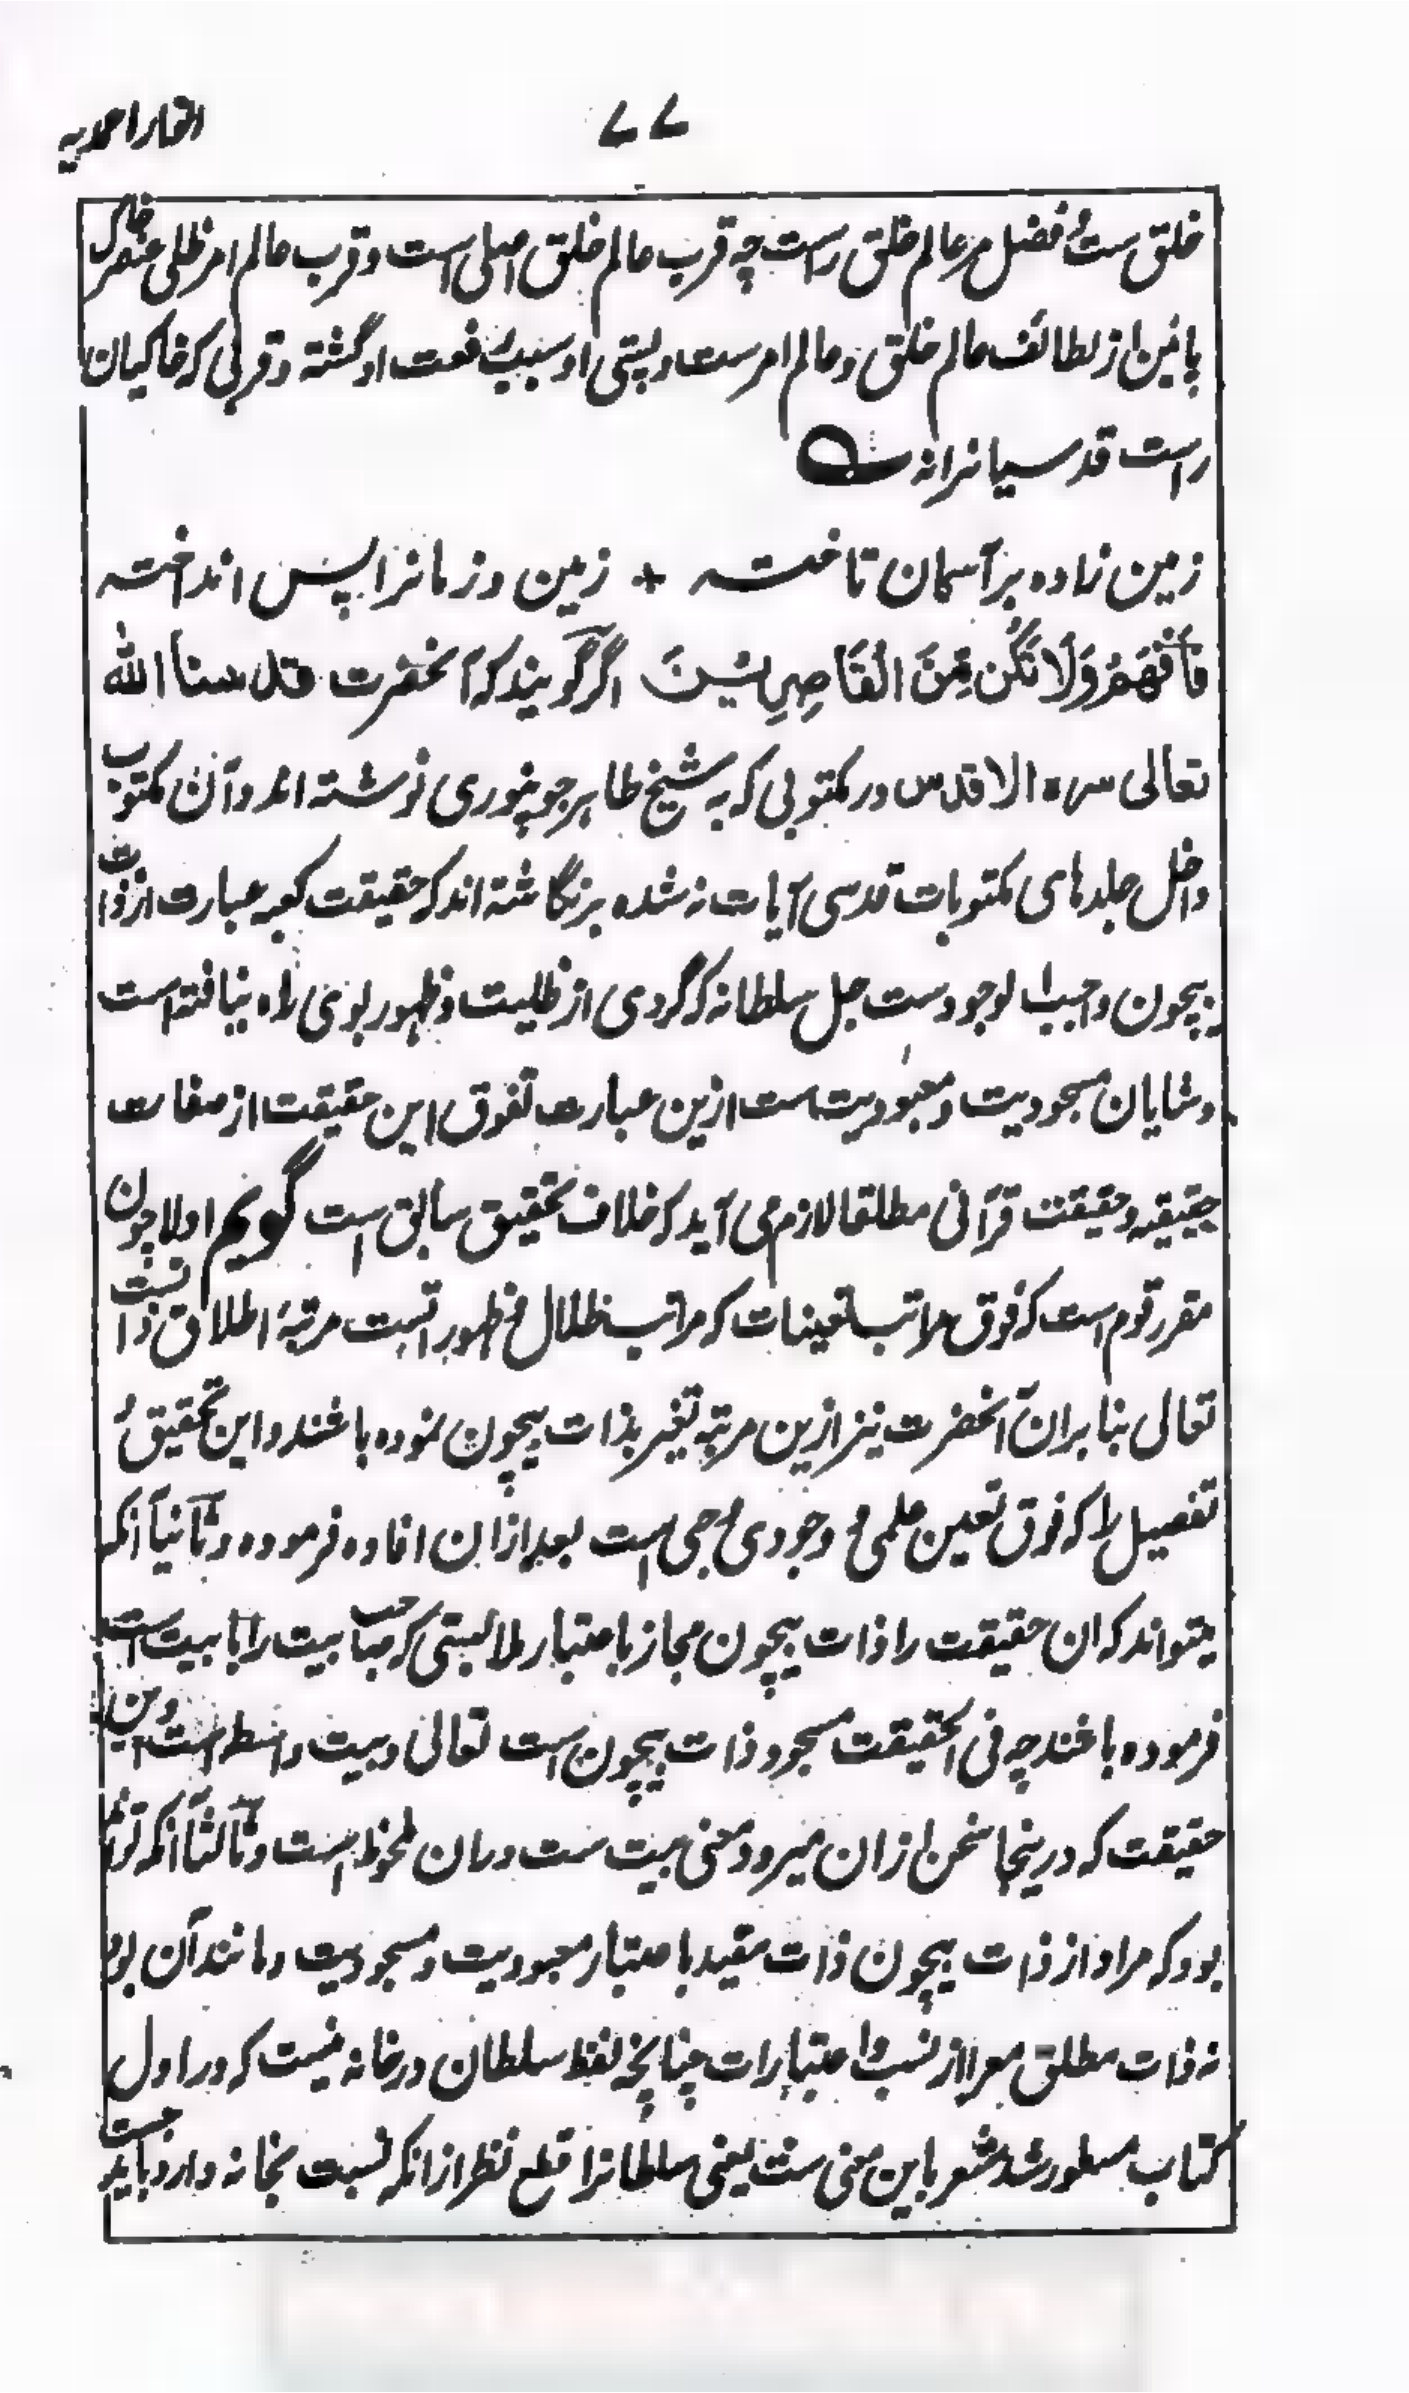 ۷۷
انهار احمدیہ
خلق ست فضل مر عالم خلق راست چه قرب عالم خلق اصلی است و قرب عالم امر ظلی عنصر خاک
پائین از لطائف عالم خلق و عالم امر ست و پستی او سبب رفعت او گشته و قربی که خاکیان
راست قدسیانرا نه
زمین زاده بر آسمان تاخته + زمین و زمانرا پس انداخته
فَأَفْهَمْ وَلَا تَكُن مِّنَ الْقَاصِرِيْنَ اگر گویند که آنحضرت قدسنا الله
تعالی سره الاقدس در مکتوبی که به شیخ طاهر جونپوری نوشته اند و آن مکتوب
داخل جلدهای مکتوبات قدسی آیات نه شده برنگاشته اند که حقیقت کعبه عبارت از ذات
بیچون واجب الوجود ست جل سلطانه که گردی از ظلیت و ظهور بوی راه نیافته است
و شایان مسجودیت و معبودیت ست ازین عبارت تفوق این حقیقت از صفات
حقیقیه و حقیقت قرآنی مطلقا لازم می آید که خلاف تحقیق سابق است گویم اولا چون
مقرر قوم است که فوق مراتب تعینات که مراتب ظلال و ظهور اتست مرتبهٔ اطلاق ذاتست
تعالی بنا بران آنحضرت نیز ازین مرتبه تعبیر بذات بیچون نموده باشند و این تحقیق و
تفصیل را که فوق تعین علمی و وجودی و حبی است بعد ازان افاده فرموده و ثانیاً آنکه
میتواند که ان حقیقت را ذات بیچون مجاز باعتبار ملابستی که صاحب بیت را با بیت است
فرموده باشند چه فی الحقیقت مسجود ذات بیچون است تعالی و بیت واسطه است و این
حقیقت که درینجا سخن ازان میرود معنی بیت ست دران ملحوظ است و ثالثاً آنکه تواند
بود که مراد از ذات بیچون ذات مقید باعتبار معبودیت و مسجودیت و مانند آن بود
نه ذات مطلق معرا از نسب و اعتبارات چنانچه لفظ سلطان در خانه نیست که در اول
کتاب مسطور شد مشعر باین معنی ست یعنی سلطانرا قطع نظر از انکه نسبت بخانه دارد باید جست